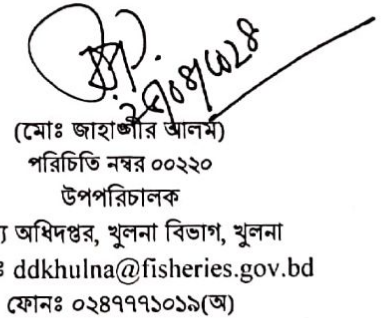 (মোঃ জাহাঙ্গীর আলম)
পরিচিতি নম্বর ০০২২০
উপপরিচালক
অধিদপ্তর, খুলনা বিভাগ, খুলনা
ddkhulna@fisheries.gov.bd
ফোনঃ ০২৪৭৭৭১০১৯(অ)